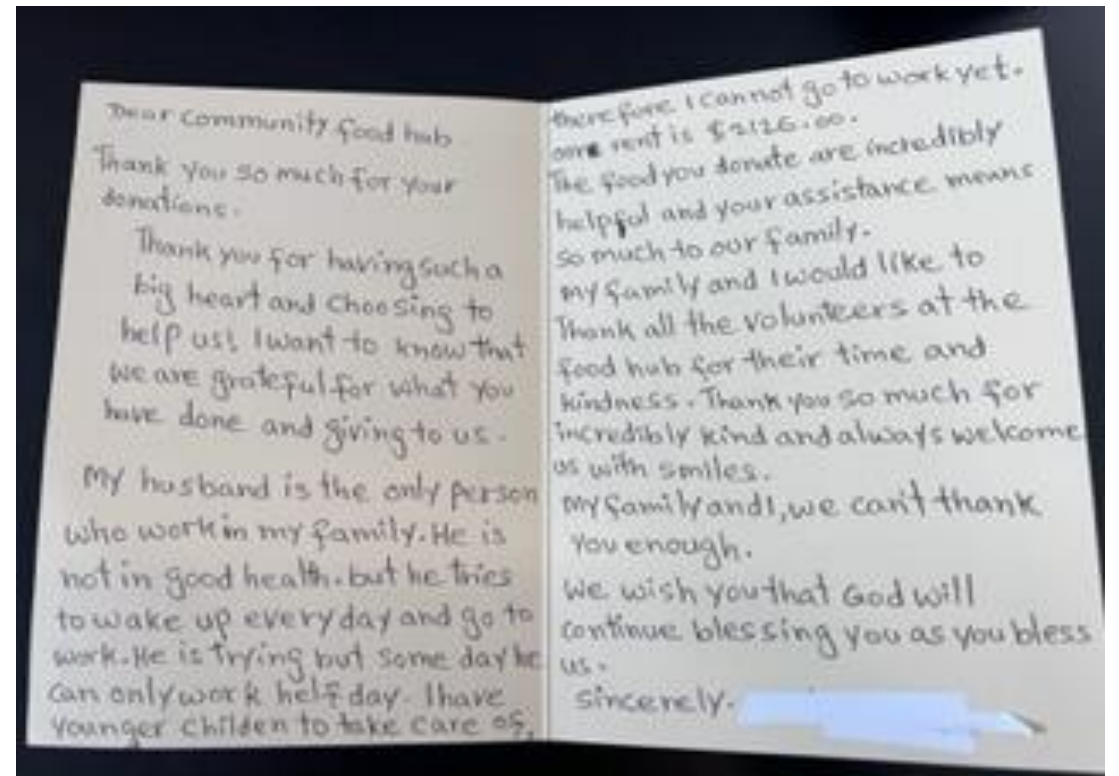 Dear community food hub
Thank you so much for your
donations.
Thank you for having such a
big heart and choosing to
help us! I want to know that
we are grateful for what you
have done and giving to us.
My husband is the only person
who work in my family. He is
not in good health. but he tries
to wake up every day and go to
work. He is trying but some day he
can only work helf day. I have
younger childen to take care of,
therefore I cannot go to work yet.
our rent is $2126.00.
The food you donate are incredibly
helpful and your assistance means
so much to our family.
my family and I would like to
Thank all the volunteers at the
food hub for their time and
kindness. Thank you so much for
incredibly kind and always welcome
us with smiles.
my family and I, we can't thank
you enough.
We wish you that God will
continue blessing you as you bless
us.
sincerely.